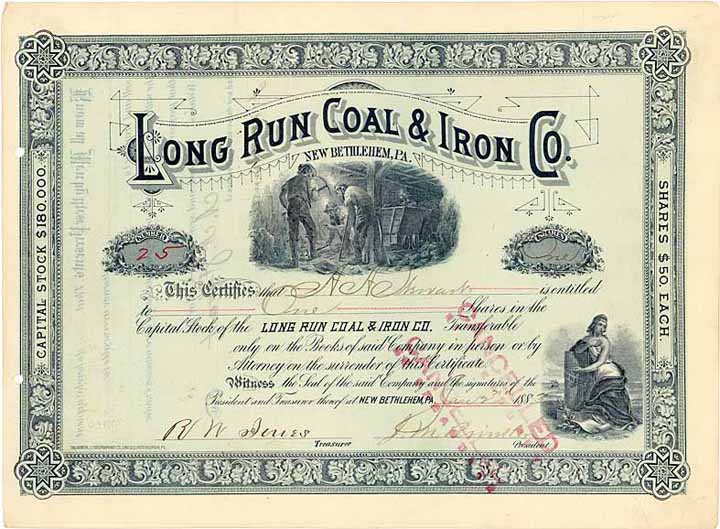 LONG RUN COAL & IRON CO.
NEW BETHLEHEM, PA.
CAPITAL STOCK $180,000.
SHARES $50. EACH.
NUMBER
25
SHARES
One
This Certifies that A. A. is entitled
to One Shares in the
Capital Stock of the LONG RUN COAL & IRON CO. Transferable
only on the Books of said Company in person or by
Attorney on the surrender of this Certificate.
Witness the Seal of the said Company and the signatures of the
President and Treasurer thereof at NEW BETHLEHEM, PA. 188
R W
Treasurer
President
CANCELLED